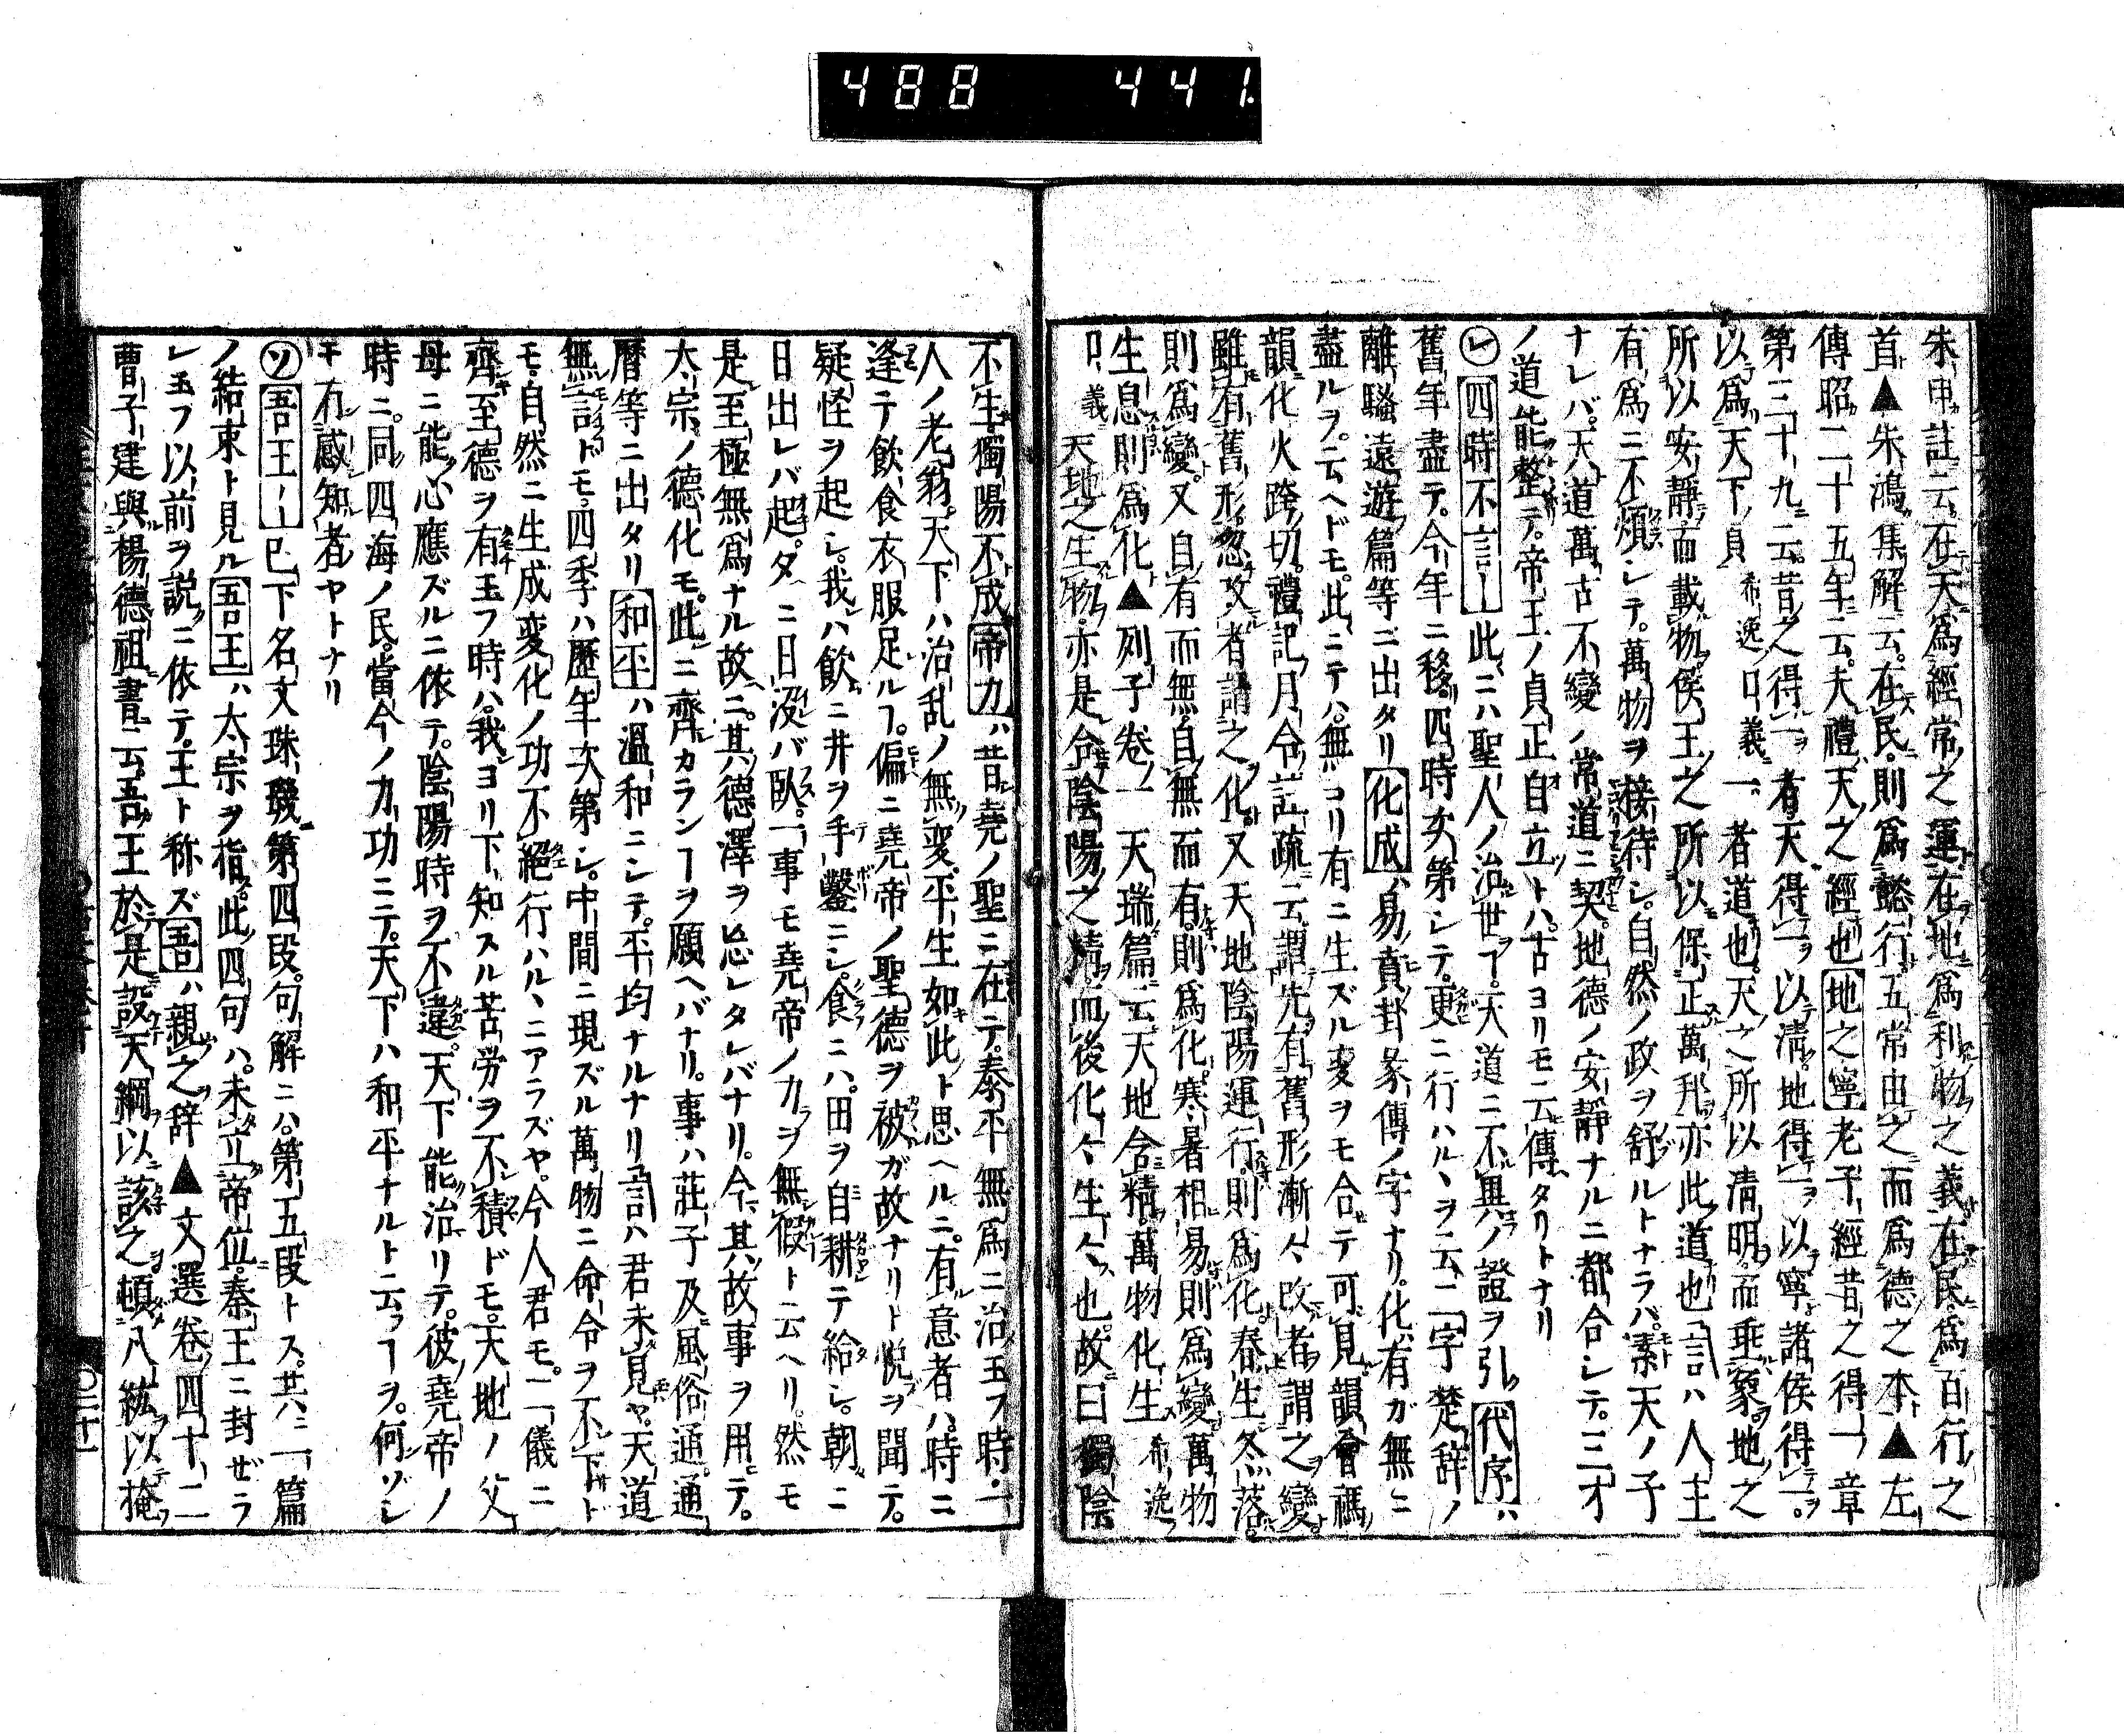 488 441.
朱申註云在天爲經常之運在地爲利物之義在民爲百行之
首▲朱鴻集解云在民則爲懿行五常由之而爲德之本▲左
傳昭二十五年云夫禮天之經也地之寧老子經昔之得一章
第三十九云昔之得一者天得一以清地得一以寧諸侯得一
以爲天下貞希逸口義一者道也天之所以清明而垂象地之
所以安靜而載物侯王之所以保正萬邦亦此道也言ハ人主
有爲ニ不煩シテ萬物ヲ接待シ自然ノ政ヲ舒ルトナラバ素天ノ子
ナレバ天道萬古不變ノ常道ニ契地德ノ安靜ナルニ都合シテ三才
ノ道能整テ帝王ノ貞正自立トハ古ヨリモ云傳タリトナリ
㋹四時不言ー此ニハ聖人ノ治世ヿ天道ニ不異ノ證ヲ引代序ハ
舊年盡テ今年ニ移四時次第シテ更ニ行ハルヽヲ云二字楚辞ノ
離騷遠遊篇等ニ出タリ化成ハ易賁卦彖傳ノ字ナリ化ハ有ガ無ニ
盡ルヲ云ヘドモ此ニテハ無ヨリ有ニ生ズル変ヲモ合テ可見韻會禡
韻化火跨切禮記月令註疏云謂先有舊形漸々改者謂之變
雖有舊形忽改者謂之化又天地陰陽運行則爲化春生冬落
則爲變又自有而無自無而有則爲化寒暑相易則爲變萬物
生息則爲化▲列子卷一天瑞篇云天地含精萬物化生希逸
口義天地之生物亦是合陰陽之精而後化々生々也故曰獨陰
不生獨陽不成帝力ハ昔堯ノ聖ニ在テ泰平無爲ニ治玉フ時一
人ノ老翁天下ハ治乱ノ無変平生如此ト思ヘルニ有意者ハ時ニ
逢テ飲食衣服足ルヿ偏ニ堯帝ノ聖德ヲ被ガ故ナリト悦ヲ聞テ
疑怪ヲ起シ我ハ飲ニ井ヲ手鑿ニシ食ニハ田ヲ自耕テ給シ朝ニ
日出レバ起タニ日没バ臥一事モ堯帝ノ力ヲ無假ト云ヘリ然モ
是至極無爲ナル故ニ其德澤ヲ忘レタレバナリ今其故事ヲ用テ
太宗ノ德化モ此ニ齊カランヿヲ願ヘバナリ事ハ莊子及風俗通通
曆等ニ出タリ和平ハ溫和ニシテ平均ナルナリ言ハ君未見ヤ天道
無言トモ四季ハ歷年次第シ中間ニ現ズル萬物ニ命令ヲ不下ト
モ自然ニ生成変化ノ功不絕行ハルヽニアラズヤ今人君モ二儀ニ
齊至德ヲ有玉フ時ハ我ヨリ下知スル苦労ヲ不積ドモ天地ノ父
母ニ能心應ズルニ依テ陰陽時ヲ不違天下能治リテ彼堯帝ノ
時ニ同四海ノ民當今ノ力功ニテ天下ハ和平ナルト云フヿヲ何ゾシ
モ有感知者ヤトナリ
㋡吾王ー已下名文珠璣第四段句解ニハ第五段トス共ニ一篇
ノ結束ト見ル吾王ハ太宗ヲ指此四句ハ未立帝位秦王ニ封ゼラ
レ玉フ以前ヲ説ニ依テ王ト称ズ吾ハ親之辞▲文選卷四十二
曹子建與楊德祖書ニ云吾王於是設天綱以該之頓八紘以掩
〇二十一